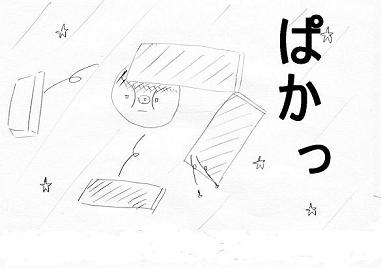 ぱかっ